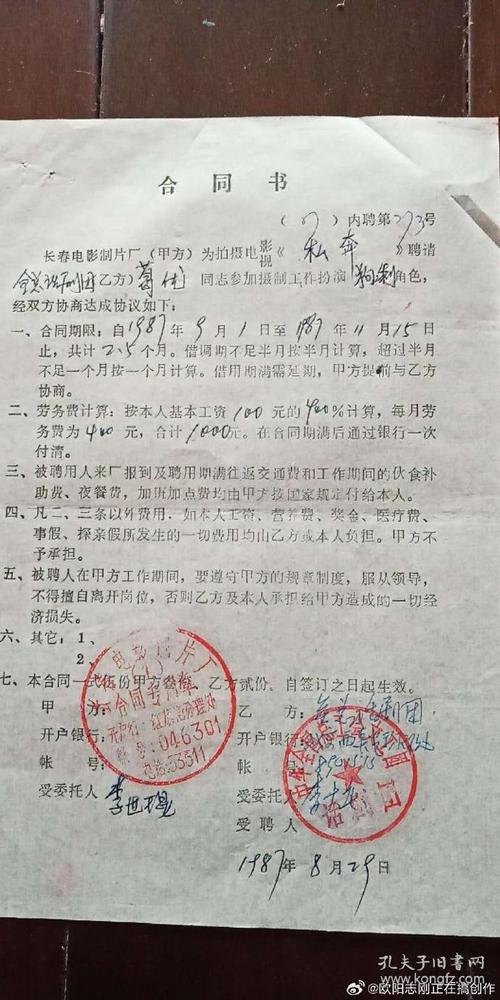 合同书
（87）内聘第273号
长春电影制片厂（甲方）为拍摄电影视《私奔》聘请
全总话剧团乙方）葛优同志参加摄制工作扮演角色，
经双方协商达成协议如下：
一、合同期限：自1987年9月1日至1987年11月15日
止，共计2.5个月。借调期不足半月按半月计算，超过半月
不足一个月按一个月计算。借用期满需延期，甲方提前与乙方
协商。
二、劳务费计算：按本人基本工资100元的400%计算，每月劳
务费为400元，合计1000元。在合同期满后通过银行一次
付清。
三、被聘用人来厂报到及聘用期满往返交通费和工作期间的伙食补
助费、夜餐费，加班加点费均由甲方按国家规定付给本人。
四、凡二、三条以外费用，如本人工资、营养费、奖金、医疗费、
事假、探亲假所发生的一切费用均由乙方或本人负担。甲方不
予承担。
五、被聘人在甲方工作期间，要遵守甲方的规章制度，服从领导，
不得擅自离开岗位，否则乙方及本人承担给甲方造成的一切经
济损失。
六、其它：1、
2、
七、本合同一式伍份甲方叁份，乙方贰份，自签订之日起生效。
甲方：
乙方：全总话剧团
开户银行：
开户银行：
帐号：
帐号：
受委托人：李世
受委托人：李
受聘人
1987年8月29日
电影制片厂
合同专用章
开户行：
帐号：046301
电话：53311
话剧团
孔夫子旧书网
www.kongfz.com
@欧阳志刚正在搞创作